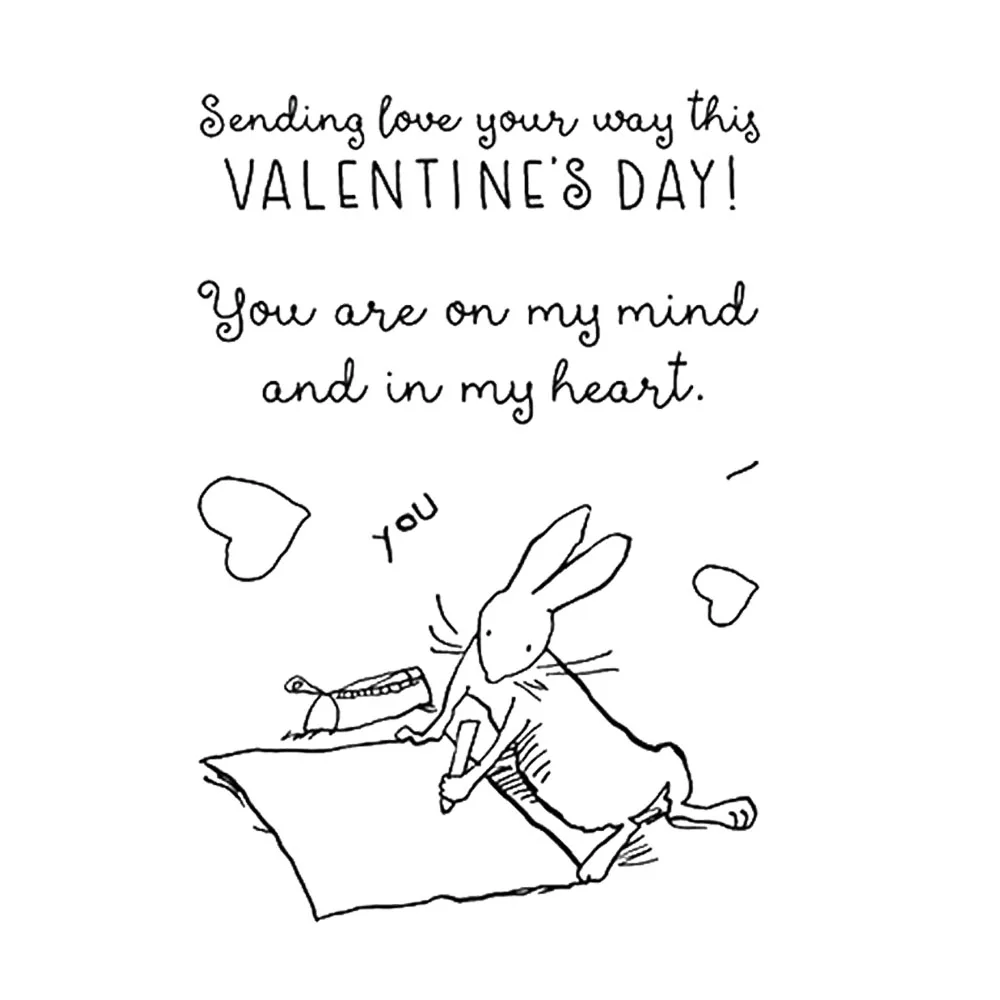 Sending love your way this
VALENTINE'S DAY!
You are on my mind
and in my heart.
you